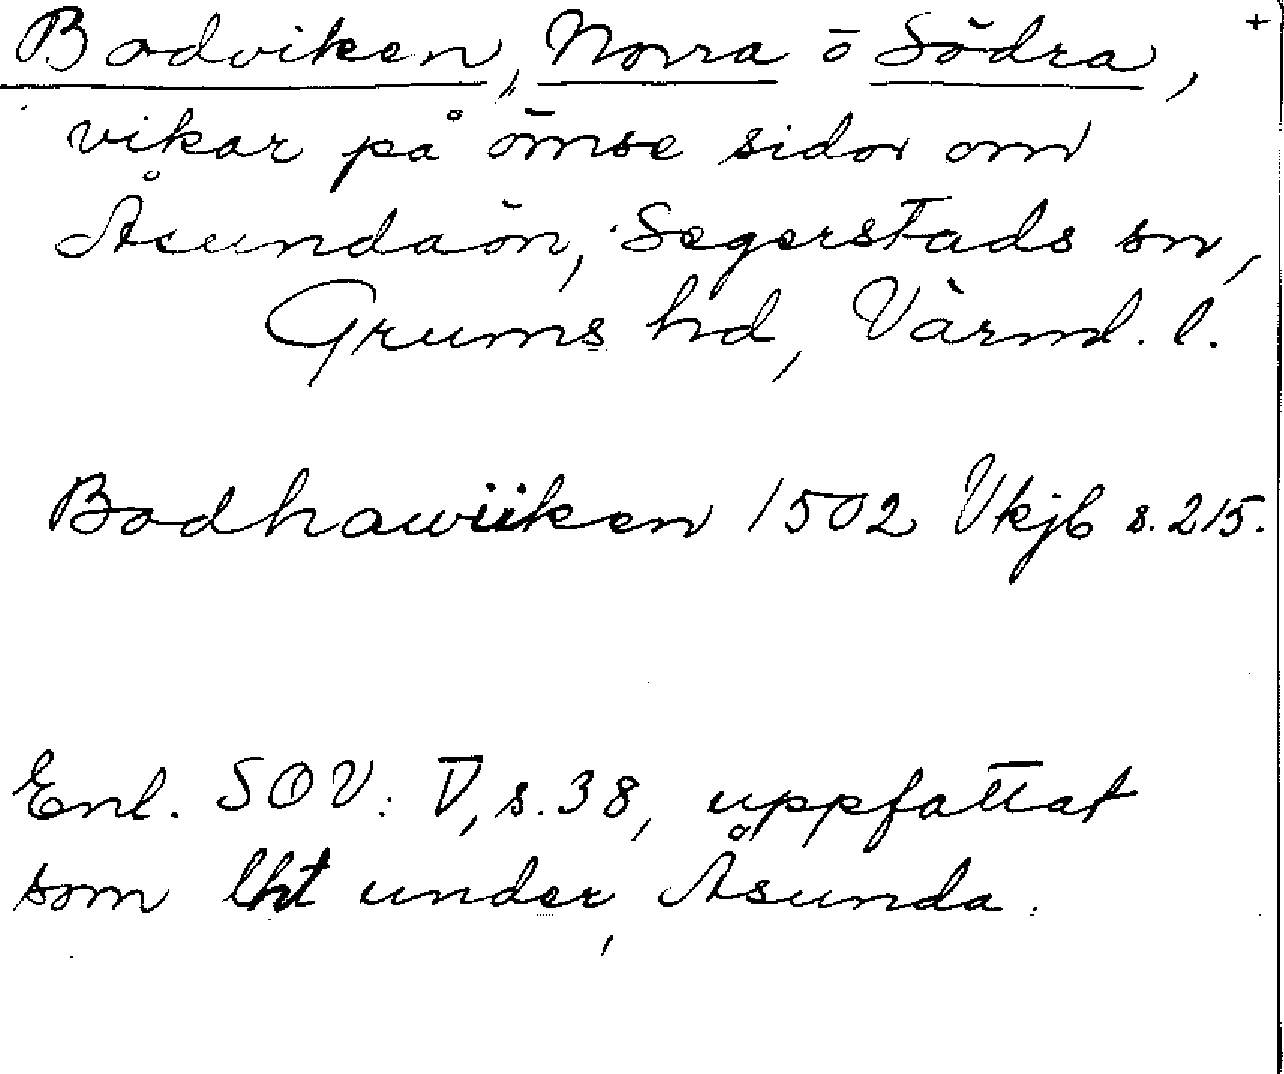 Bodviken, Norra o Södra, +
vikar på ömse sidor om
Åsundaön, Segerstads sn,
Grums hd, Värml. l.
Bodhawiiken 1502 Vkjb s. 215.
Enl. SOV: V, s. 38, uppfattat
som lht under Åsunda.